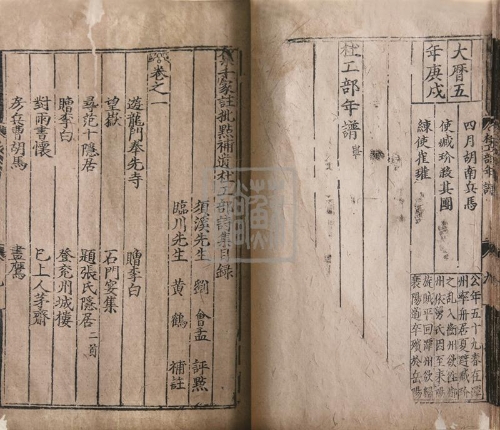 大曆五
年庚戌
四月胡南兵馬
使臧玠殺其團
練使崔瓘
公年五十九春在
州寧
之亂入衡州欲
州依舅氏因至耒
旋賊平回潭州欲
襄陽
杜工部年譜 畢
杜工部年譜
集千家註批點補遺杜工部詩集目錄
須溪先生 劉 會孟 評點
臨川先生 黃 鶴 補註
卷之一
遊龍門奉先寺 贈李白
望嶽 石門宴集
尋范十隱居 題張氏隱居 二首
贈李白 登兗州城樓
對雨書懷 已上人茅齋
房兵曹胡馬 畫鷹